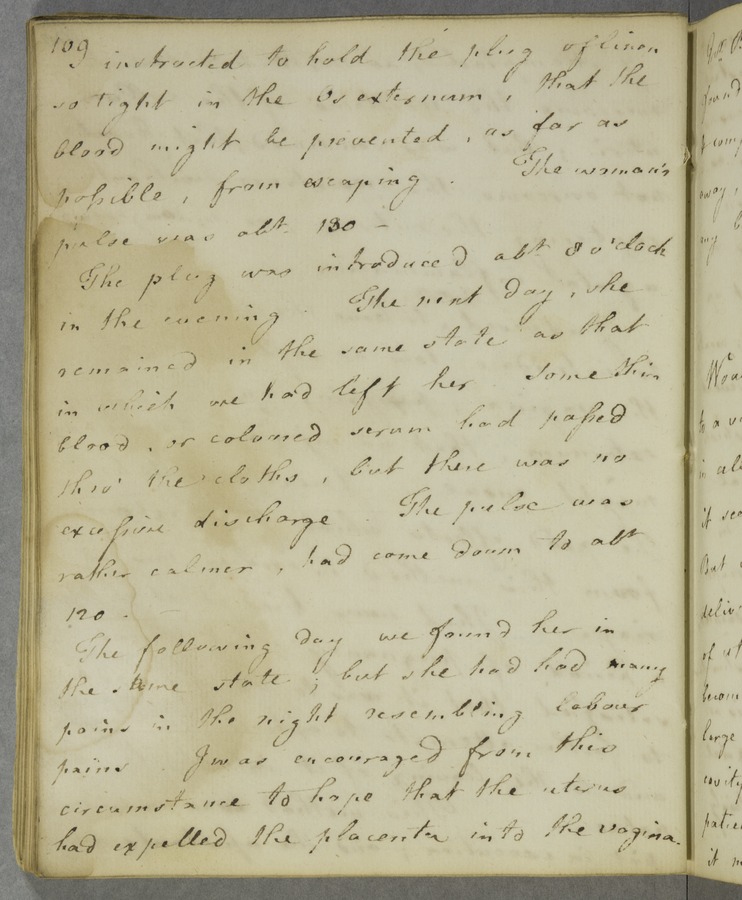 109
instructed to hold the plug of linen
so tight in the Os externum, that the
blood might be prevented, as far as
possible, from escaping. The woman's
pulse was abt. 130 -
The plug was introduced abt 8 o'clock
in the evening. The next day, she
remained in the same state as that
in which we had left her some thin
blood, or coloured serum had passed
thro' the cloths, but there was no
excessive discharge. The pulse was
rather calmer, had come down to abt
120. -
The following day we found her in
the same state; but she had had many
pains in the night resembling Labour
pains. I was encouraged from this
circumstance to hope that the uterus
had expelled the placenta into the vagina.